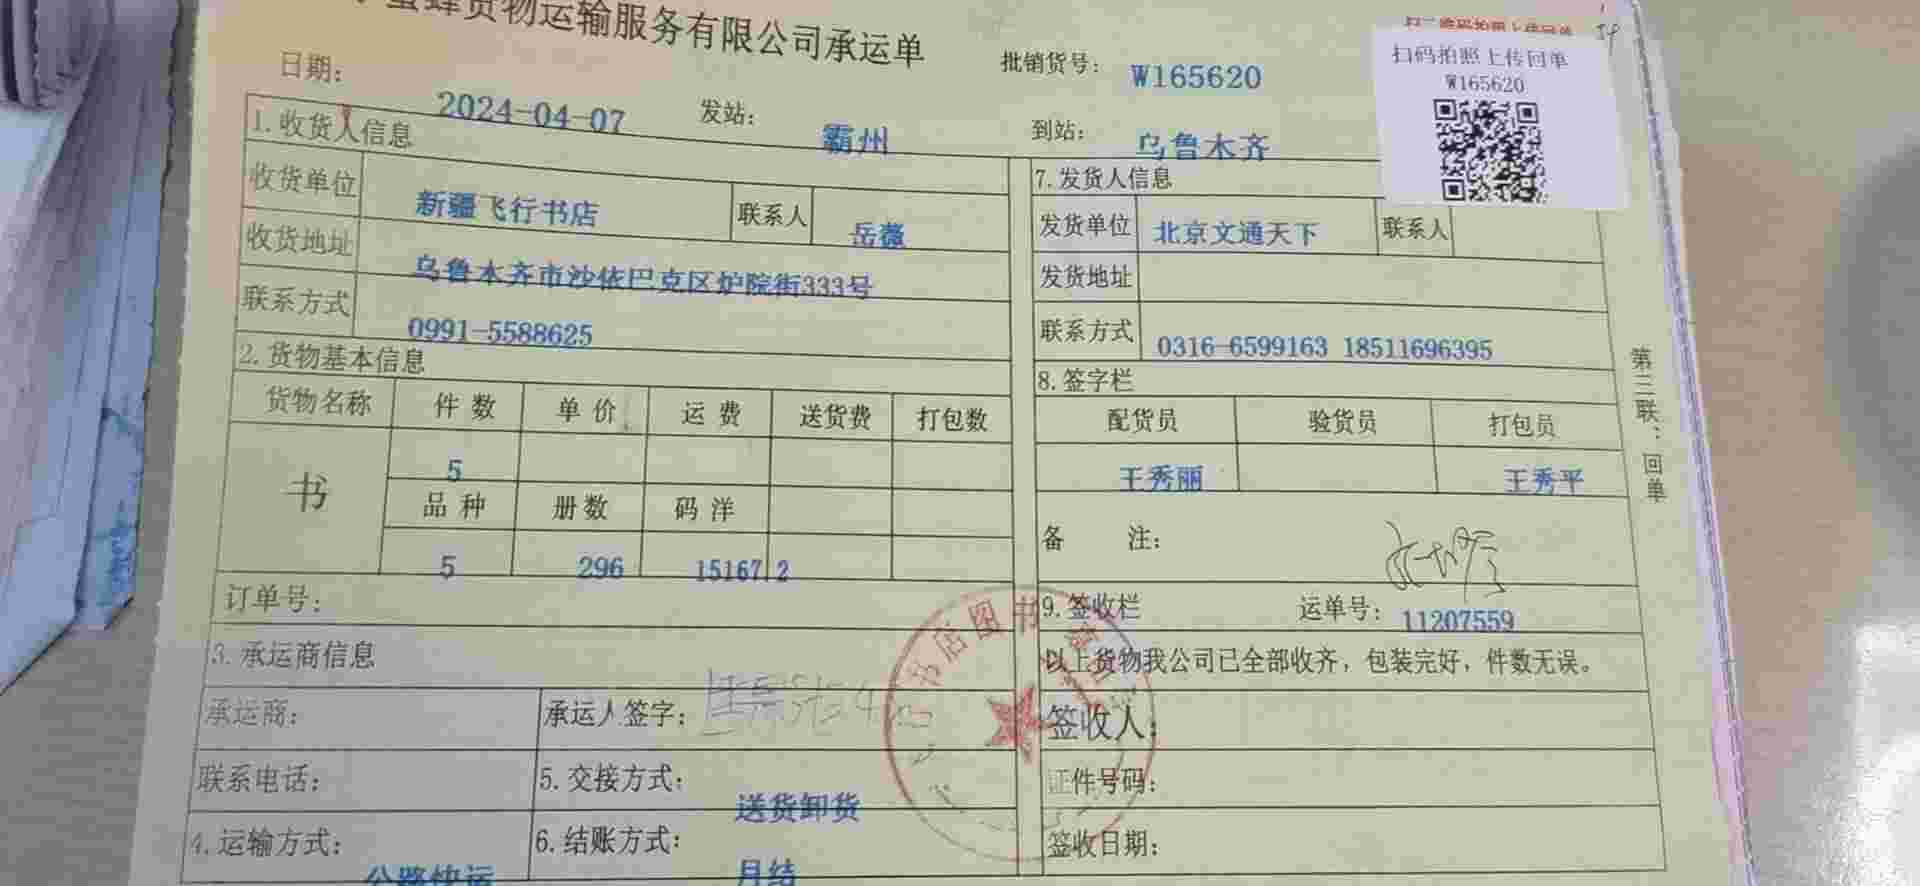 蜜蜂货物运输服务有限公司承运单
扫码拍照上传回单
W165620
日期: 2024-04-07 发站: 霸州 批销货号: W165620 到站: 乌鲁木齐
1.收货人信息
收货单位 新疆飞行书店 联系人 岳薇
收货地址 乌鲁木齐市沙依巴克区炉院街333号
联系方式 0991-5588625
2.货物基本信息
货物名称 件数 单价 运费 送货费 打包数
书 5
品种 册数 码洋
5 296 15167.2
订单号:
3.承运商信息
承运商: 承运人签字:
联系电话: 5.交接方式: 送货卸货
4.运输方式: 公路快运 6.结账方式: 月结
7.发货人信息
发货单位 北京文通天下 联系人
发货地址
联系方式 0316-6599163 18511696395
8.签字栏
配货员 验货员 打包员
王秀丽 王秀平
备注:
9.签收栏 运单号: 11207559
以上货物我公司已全部收齐，包装完好，件数无误。
签收人:
证件号码:
签收日期:
第三联：回单
书店图书